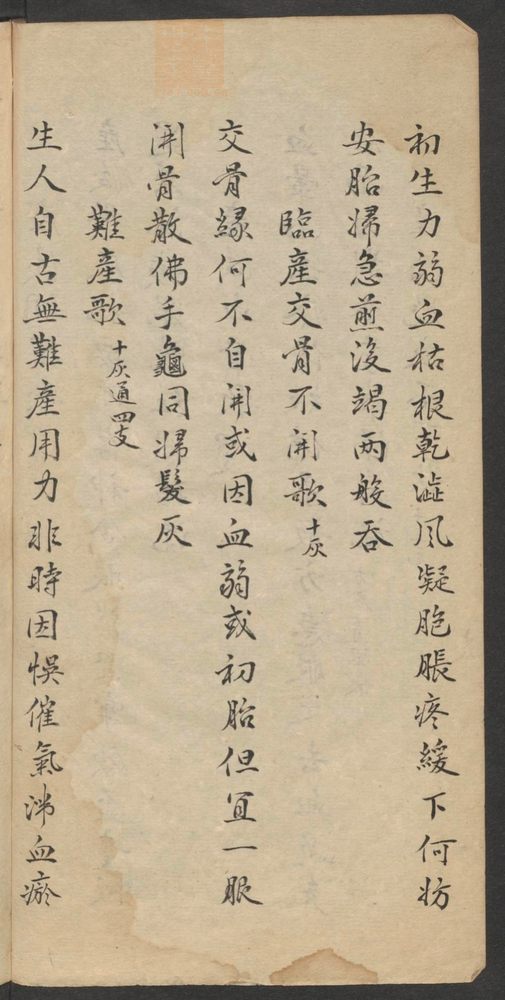 初生力弱血枯根乾澁風凝胞脹疼緩下何妨
安胎婦急煎沒竭两般吞
臨產交骨不開歌 十灰
交骨緣何不自開或因血弱或初胎但宜一服
開骨散佛手龜同婦髮灰
難產歌 十灰通四支
生人自古無難產用力非時因悞催氣滯血瘀